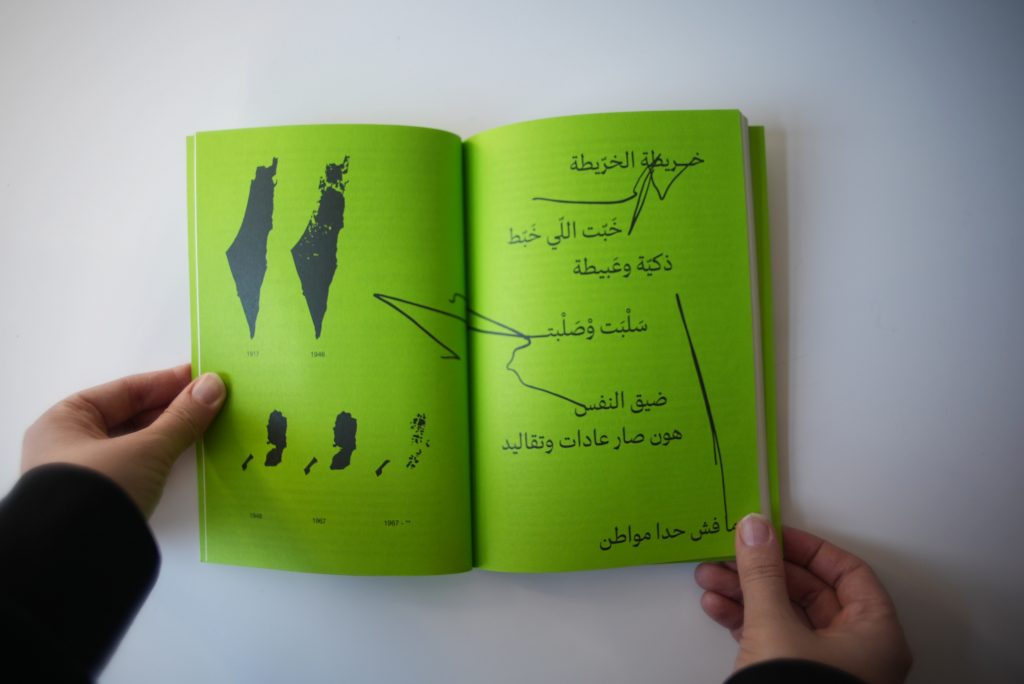 1917 1946
1948 1967 1967 -
خـريطة الخرّيطة
خَبّت اللّي خَبَط
ذكيّة وعَبيطة
سَلْبَت وْصَلْبتـ
ضيق النفس
هون صار عادات وتقاليد
ما فش حدا مواطن